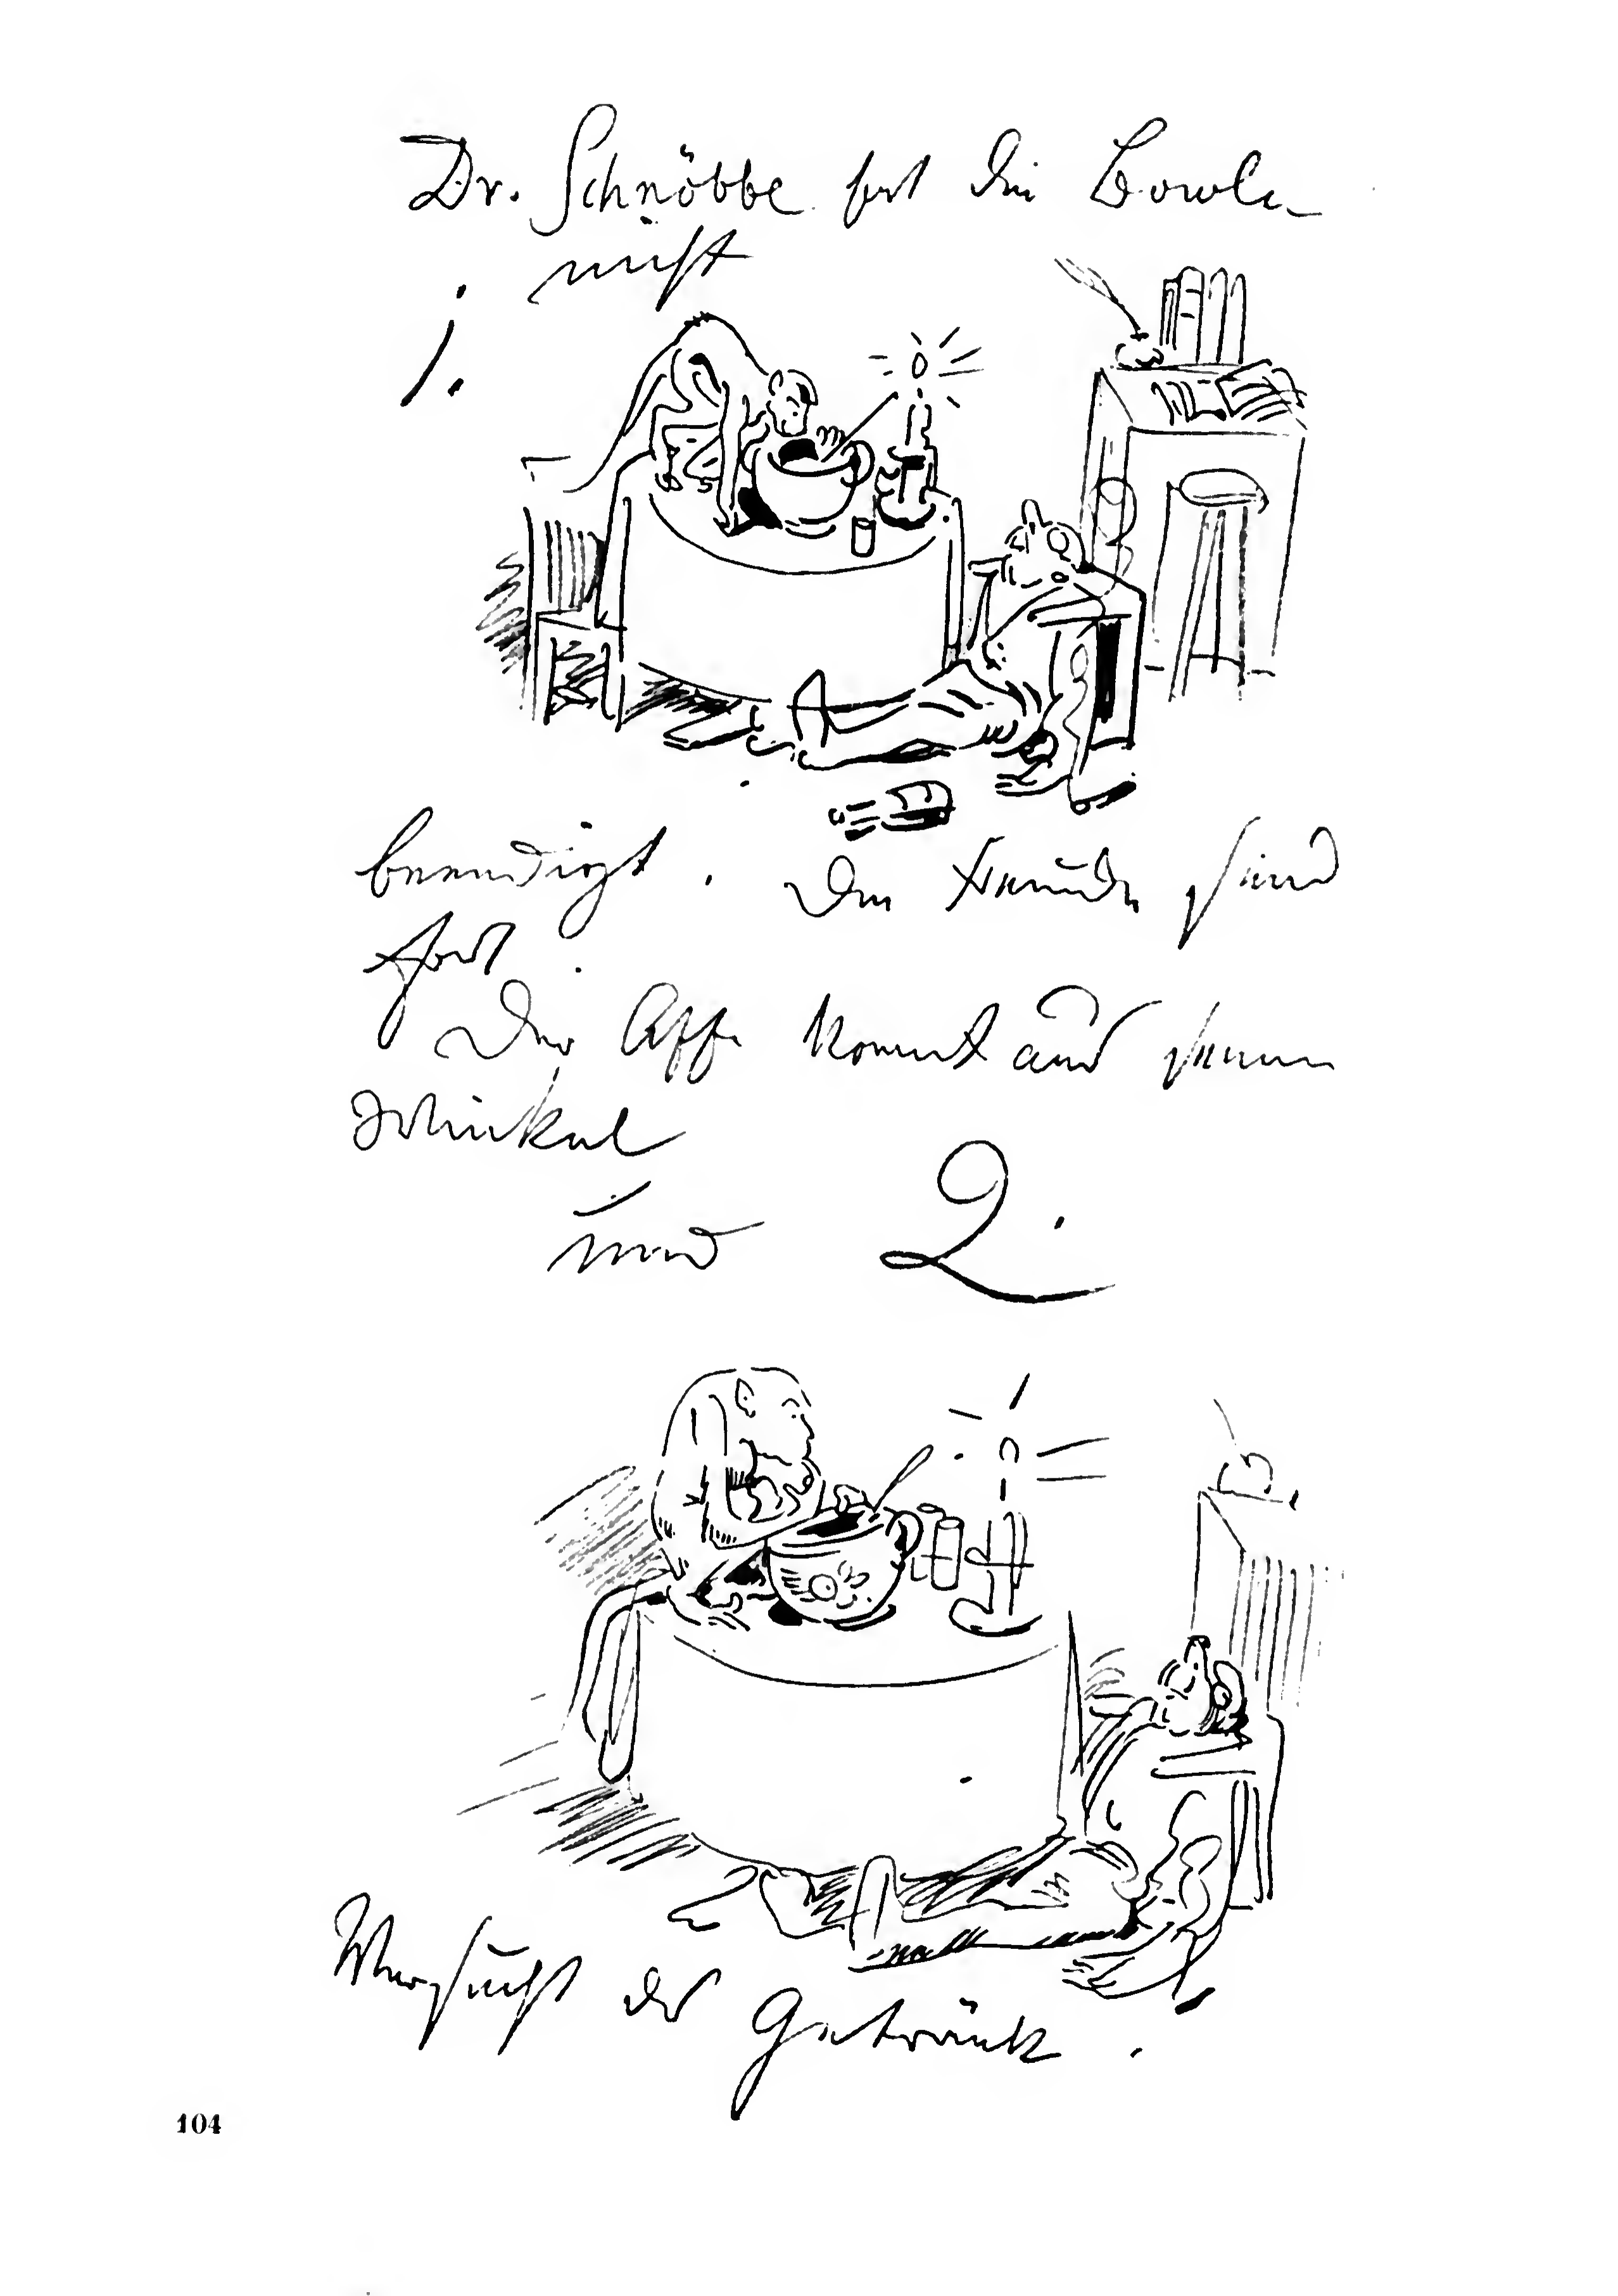 Dr. Schnöbbe hat die Bowle
nicht
1.
beendigt. Die Freunde sind
fort.
Der Affe kommt aus seinem
Winkel
und 2.
Versucht das Getränk.
104